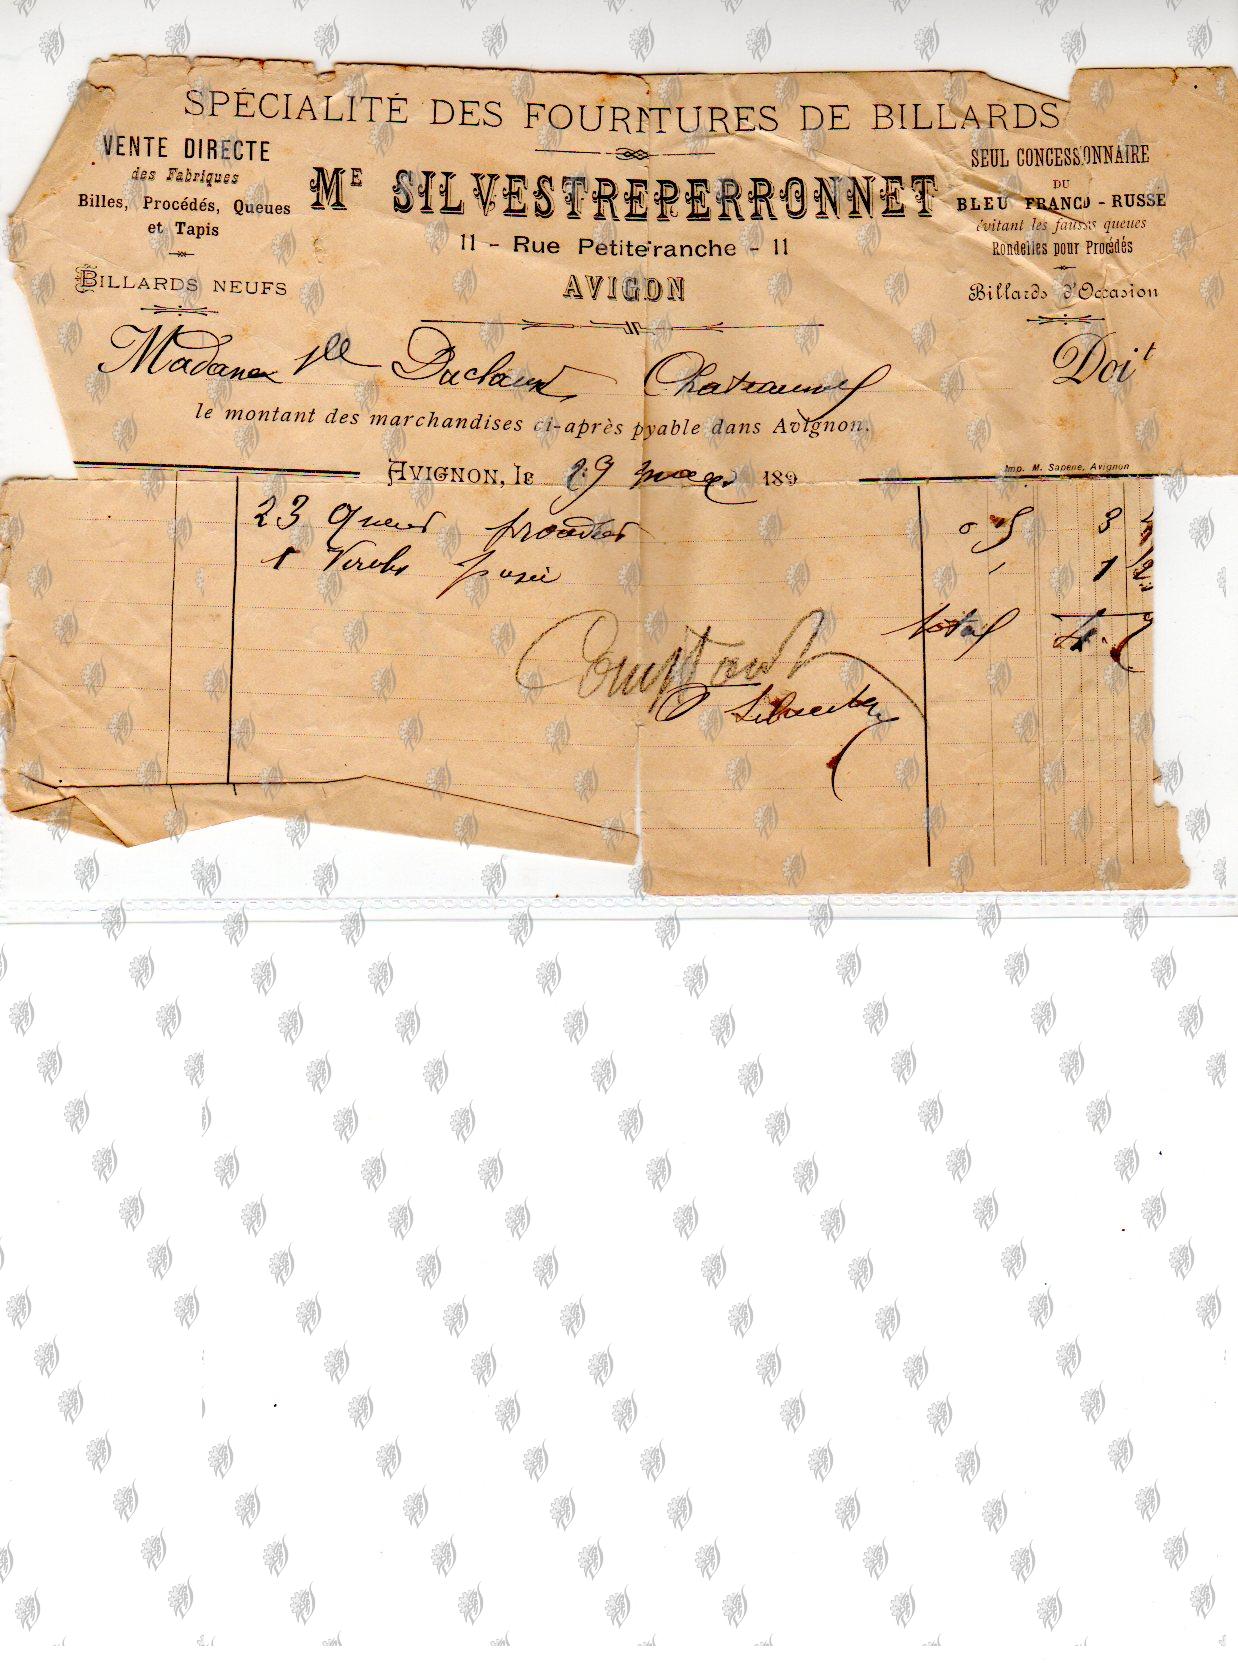 SPÉCIALITÉ DES FOURNITURES DE BILLARDS
VENTE DIRECTE
des Fabriques
Billes, Procédés, Queues
et Tapis
BILLARDS NEUFS
ME SILVESTRE PERRONNET
11 - Rue Petite franche - 11
AVIGON
SEUL CONCESSIONNAIRE
DU
BLEU FRANCO - RUSSE
évitant les fausses queues
Rondelles pour Procédés
Billards d'Occasion
Madame Duclaux Doit
le montant des marchandises ci-après pyable dans Avignon.
Imp. M. Sapene, Avignon
AVIGNON, le 29 mars 189
23 queues
1 posée 1
total